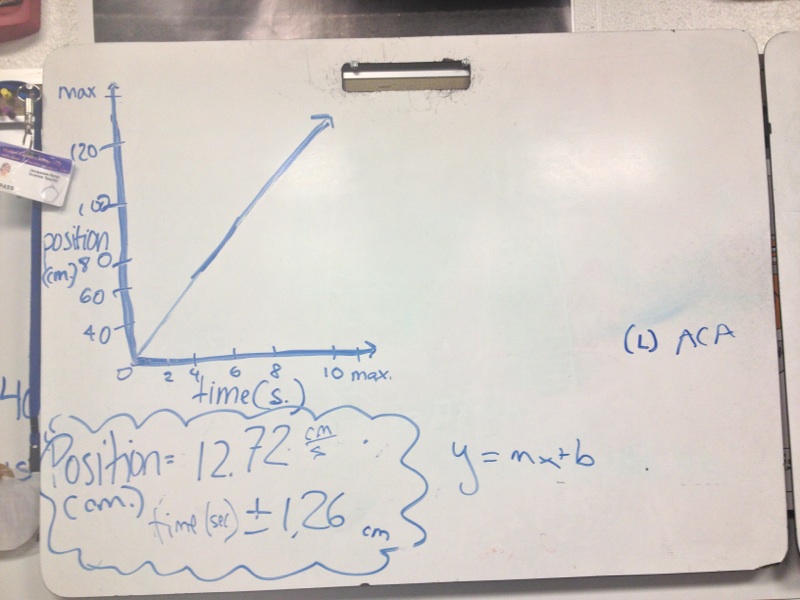 max
120
100
position
(cm.) 80
60
40
0 2 4 6 8 10 max.
time(s.)
Position = 12.72 cm/s .
(cm.) time (sec) ± 1.26 cm
y = mx + b
(L) ACA